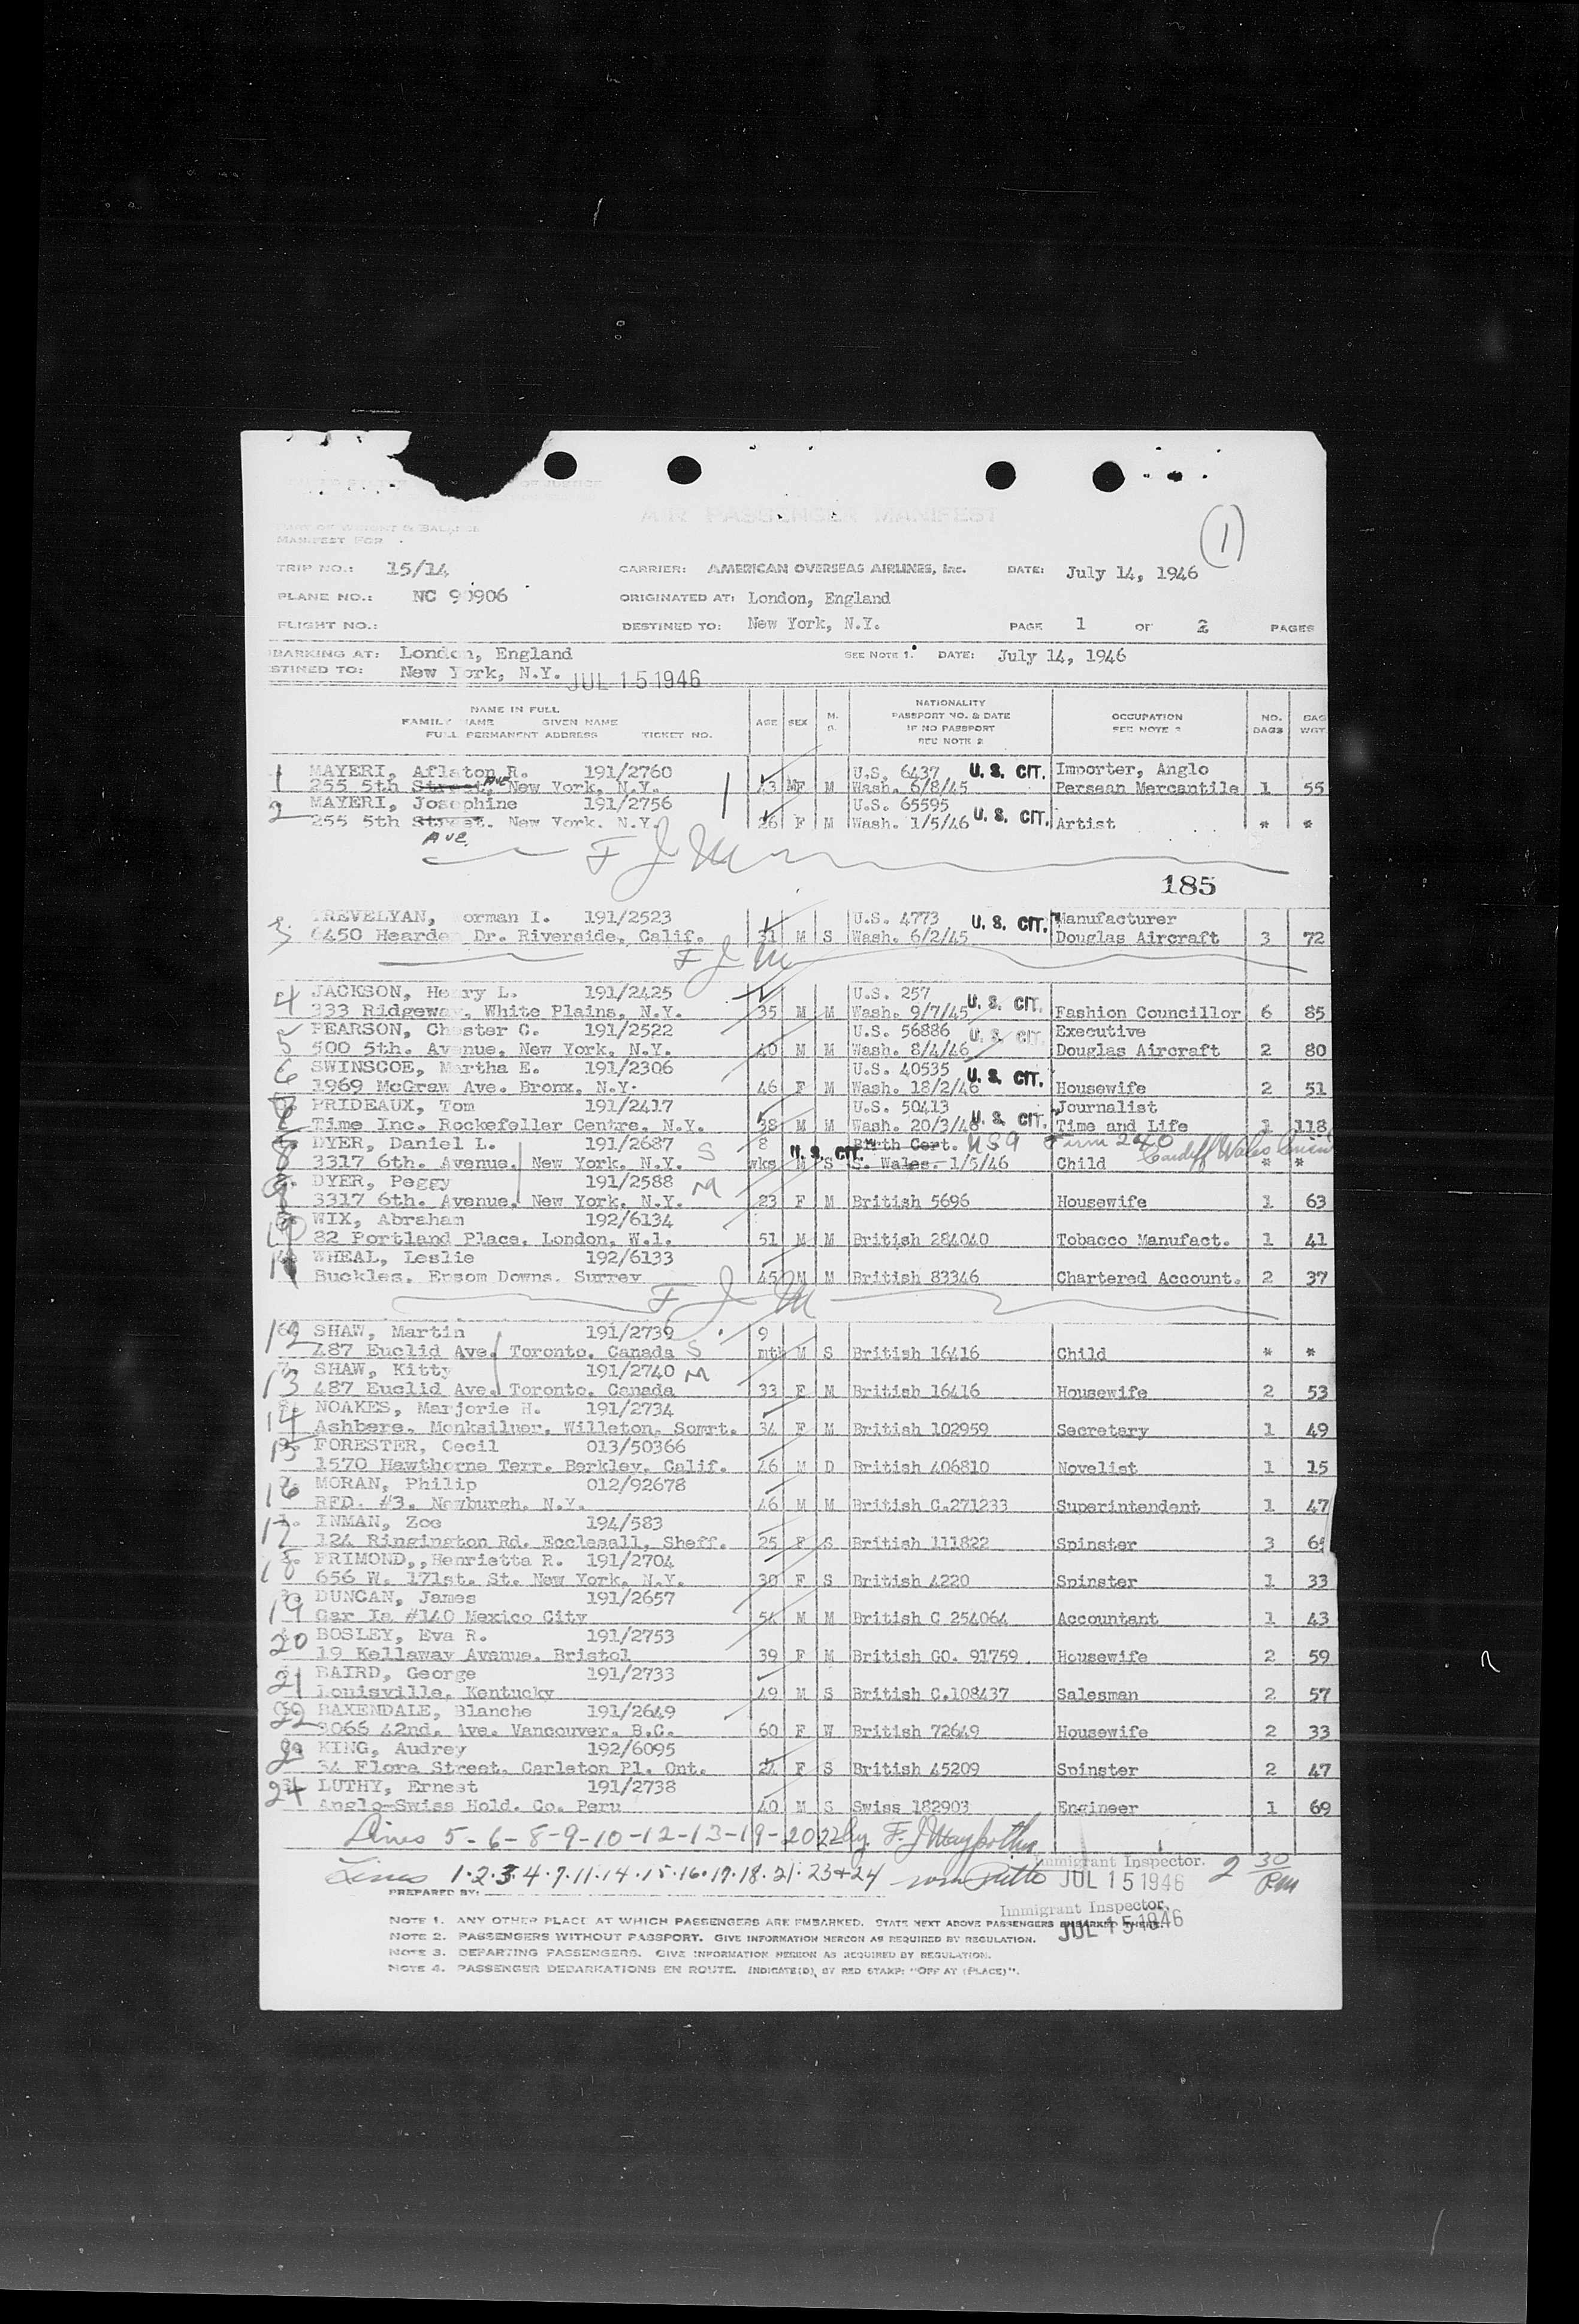 AIR PASSENGER MANIFEST
PART OF WEIGHT & BALANCE
MANIFEST FOR
1
TRIP NO.: 15/14 CARRIER: AMERICAN OVERSEAS AIRLINES, Inc. DATE: July 14, 1946
PLANE NO.: NC 90906 ORIGINATED AT: London, England
FLIGHT NO.: DESTINED TO: New York, N.Y. PAGE 1 OF 2 PAGES
BARKING AT: London, England SEE NOTE 1. DATE: July 14, 1946
STINED TO: New York, N.Y. JUL 15 1946
NAME IN FULL
FAMILY NAME GIVEN NAME
FULL PERMANENT ADDRESS TICKET NO. AGE SEX M. S. NATIONALITY PASSPORT NO. & DATE IF NO PASSPORT SEE NOTE 2 OCCUPATION SEE NOTE 2 NO. BAGS BAG WGT.
1 MAYERI, Aflaton R. 191/2760 U.S. 6437 U. S. CIT. Importer, Anglo
255 5th Street, Ave New York, N.Y. 43 M M Wash. 6/8/45 Persean Mercantile 1 55
2 MAYERI, Josephine 191/2756 U.S. 65595
255 5th Street. New York. N.Y. 26 F M Wash. 1/5/46 U. S. CIT. Artist * *
Ave.
F J M
185
3 TREVELYAN, orman I. 191/2523 U.S. 4773 U. S. CIT. Manufacturer
6450 Hearde Dr. Riverside, Calif. 31 M S Wash. 6/2/45 Douglas Aircraft 3 72
F J M
4 JACKSON, Henry L. 191/2425 U.S. 257
333 Ridgeway, White Plains, N.Y. 35 M M Wash. 9/7/45 U. S. CIT. Fashion Councillor 6 85
5 PEARSON, Chester C. 191/2522 U.S. 56886 U. S. CIT. Executive
500 5th. Avenue, New York, N.Y. 40 M M Wash. 8/4/46 Douglas Aircraft 2 80
6 SWINSCOE, Martha E. 191/2306 U.S. 40535
1969 McGraw Ave. Bronx, N.Y. 46 F M Wash. 18/2/46 U. S. CIT. Housewife 2 51
7 PRIDEAUX, Tom 191/2417 U.S. 50413 Journalist
Time Inc. Rockefeller Centre, N.Y. 38 M M Wash. 20/3/46 U. S. CIT. Time and Life 1 118
8 DYER, Daniel L. 191/2687 S 8 Birth Cert. USA Form 2240
3317 6th. Avenue, New York, N.Y. wks M S U. S. CIT. S. Wales. 1/5/46 Child Cardiff Wales * *
9 DYER, Peggy 191/2588 M
3317 6th. Avenue, New York, N.Y. 23 F M British 5696 Housewife 1 63
10 WIX, Abraham 192/6134
82 Portland Place, London, W.1. 51 M M British 284040 Tobacco Manufact. 1 41
11 WHEAL, Leslie 192/6133
Buckles. Epsom Downs. Surrey 45 M M British 83346 Chartered Account. 2 37
F J M
12 SHAW, Martin 191/2739 9
487 Euclid Ave. Toronto, Canada S mth M S British 16416 Child * *
13 SHAW, Kitty 191/2740 M
487 Euclid Ave. Toronto, Canada 33 F M British 16416 Housewife 2 53
14 NOAKES, Marjorie H. 191/2734
Ashbere, Monksilver, Willeton, Somrt. 34 F M British 102959 Secretary 1 49
15 FORESTER, Cecil 013/50366
1570 Hawthorne Terr. Berkley, Calif. 46 M D British 406810 Novelist 1 15
16 MORAN, Philip 012/92678
RFD. #3. Newburgh, N.Y. 46 M M British C.271233 Superintendent 1 47
17 INMAN, Zoe 194/583
124 Ringington Rd. Ecclesall, Sheff. 25 F S British 111822 Spinster 3
18 PRIMOND,,Henrietta R. 191/2704
656 W. 171st. St. New York, N.Y. 30 F S British 4220 Spinster 1 33
19 DUNCAN, James 191/2657
Gar Ia #140 Mexico City 54 M M British C 254064 Accountant 1 43
20 BOSLEY, Eva R. 191/2753
19 Kellaway Avenue. Bristol 39 F M British CO. 91759 Housewife 2 59
21 BAIRD, George 191/2733
Louisville, Kentucky 49 M S British C.108437 Salesman 2 57
22 BAXENDALE, Blanche 191/2649
3066 42nd. Ave. Vancouver, B.C. 60 F W British 72649 Housewife 2 33
23 KING, Audrey 192/6095
34 Flora Street. Carleton Pl. Ont. 24 F S British 45209 Spinster 2 47
24 LUTHY, Ernest 191/2738
Anglo-Swiss Hold. Co. Peru 40 M S Swiss 182903 Engineer 1 69
Lines 5-6-8-9-10-12-13-19-20 22 by F. J.
Immigrant Inspector.
Lines 1.2.3.4.7.11.14.15.16.17.18.21.23+24 JUL 15 1946 2 30 P.M
PREPARED BY:
Immigrant Inspector.
JUL 15 1946
NOTE 1. ANY OTHER PLACE AT WHICH PASSENGERS ARE EMBARKED. STATE NEXT ABOVE PASSENGERS EMBARKED THERE.
NOTE 2. PASSENGERS WITHOUT PASSPORT. GIVE INFORMATION HEREON AS REQUIRED BY REGULATION.
NOTE 3. DEPARTING PASSENGERS. GIVE INFORMATION HEREON AS REQUIRED BY REGULATION.
NOTE 4. PASSENGER DEBARKATIONS EN ROUTE. INDICATE(D) BY RED STAMP: "OFF AT (PLACE)".